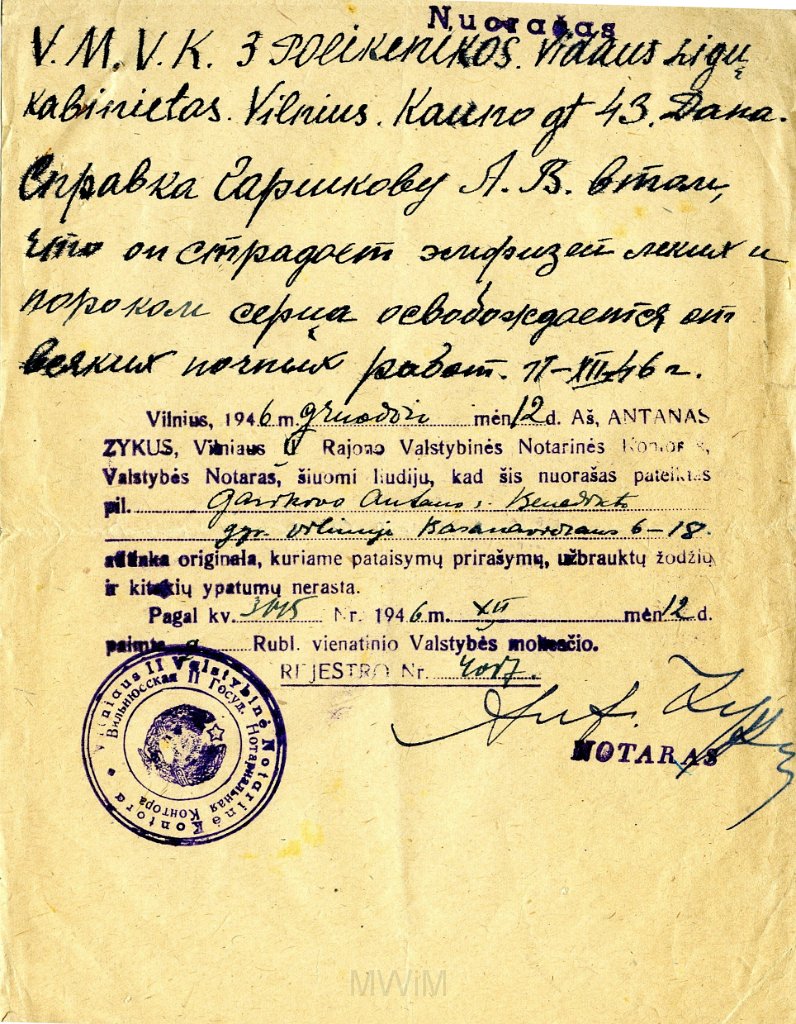 Nuorašas
V. M. V. K. 3 Polikenikos. Vidaus Ligų
kabinietas. Vilnius. Kauno gt 43. Dana.
Справка Гаришкову А. В. в том,
что он страдает эмфизей леких и
пороком серца освобождается от
всяких ночных работ. 11-XII-46 г.
Vilnius, 1946 m. gruodžio mėn 12 d. Aš, ANTANAS
ZYKUS, Vilniaus II Rajono Valstybinės Notarinės Kontoros,
Valstybės Notaras, šiuomi liudiju, kad šis nuorašas pateiktas
pil. Antano Benedikto
gyv. Vilniuje Basanavičiaus 6-18.
atitinka originalą, kuriame pataisymų prirašymų, užbrauktų žodžių
ir kitokių ypatumų nerasta.
Pagal kv. Nr. 1946 m. XII mėn 12 d.
paimta Rubl. vienatinio Valstybės mokesčio.
REJESTRO Nr.
NOTARAS
Vilniaus II Valstybinė Notarinė Kontora
Вильнюсская II Госуд. Нотариальная Контора
MWiM